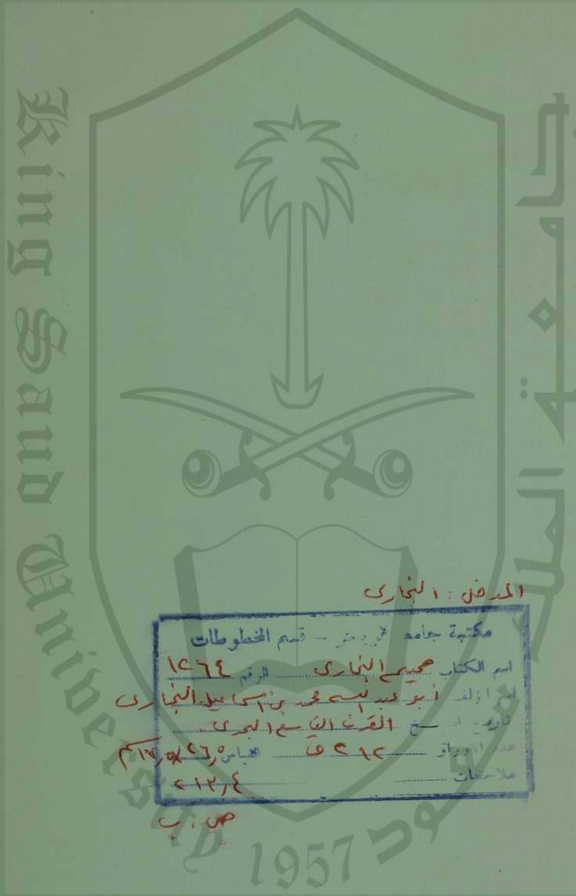 King Saud University
جامعة الملك
1957
المدخل : البخارى
مكتبة جامعة الرياض - قسم المخطوطات
اسم الكتاب صحيح البخارى الرقم ١٢٦٤
اسم المؤلف أبو عبد الله محمد بن اسماعيل البخارى
تاريخ النسخ القرن التاسع الهجرى
عدد الأوراق ٢١٢ ق
ملاحظات ٢١٣٫٤
ص . ب